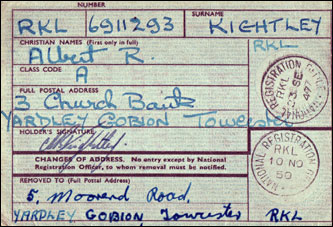 NUMBER SURNAME
RKL 6911293 KIGHTLEY
CHRISTIAN NAMES (First only in full) RKL
Albert R.
CLASS CODE
A
FULL POSTAL ADDRESS
3 Church Bank
YARDLEY GOBION Towcester
HOLDER'S SIGNATURE
CHANGES OF ADDRESS. No entry except by National
Registration Officer, to whom removal must be notified.
REMOVED TO (Full Postal Address)
5, Moorend Road,
YARDLEY GOBION Towcester RKL
REGISTRATION
RKL
47
NATIONAL REGISTRATION
RKL
10 NO
50